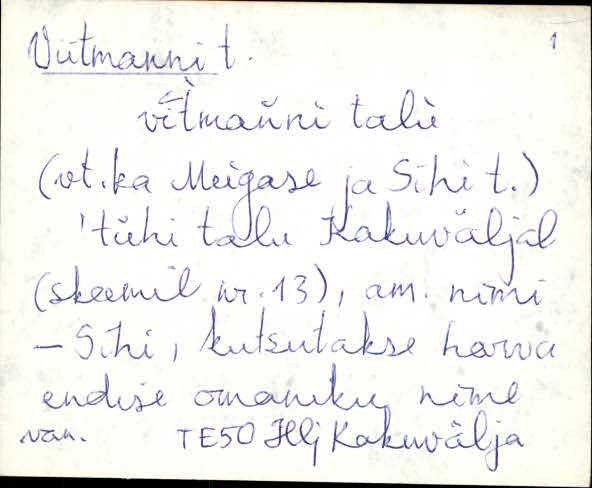 Viitmanni t. 1
vìtmaňni talù
(vt. ka Meigase ja Sihi t.)
'tühi talu Kakuväljal
(skeemil nr. 13), am. nimi
– Sihi, kutsutakse harva
endise omaniku nime
van. TE50 Hlj Kakuvälja